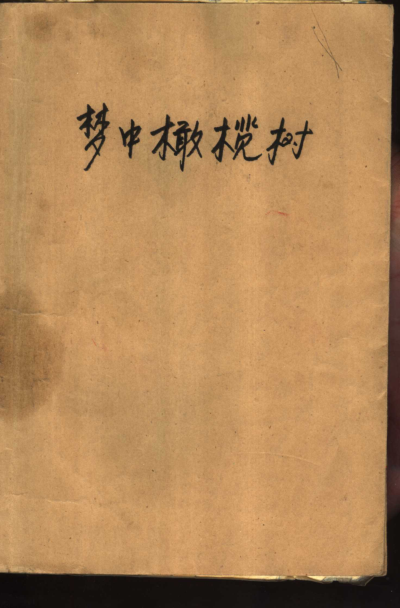 梦中橄榄树